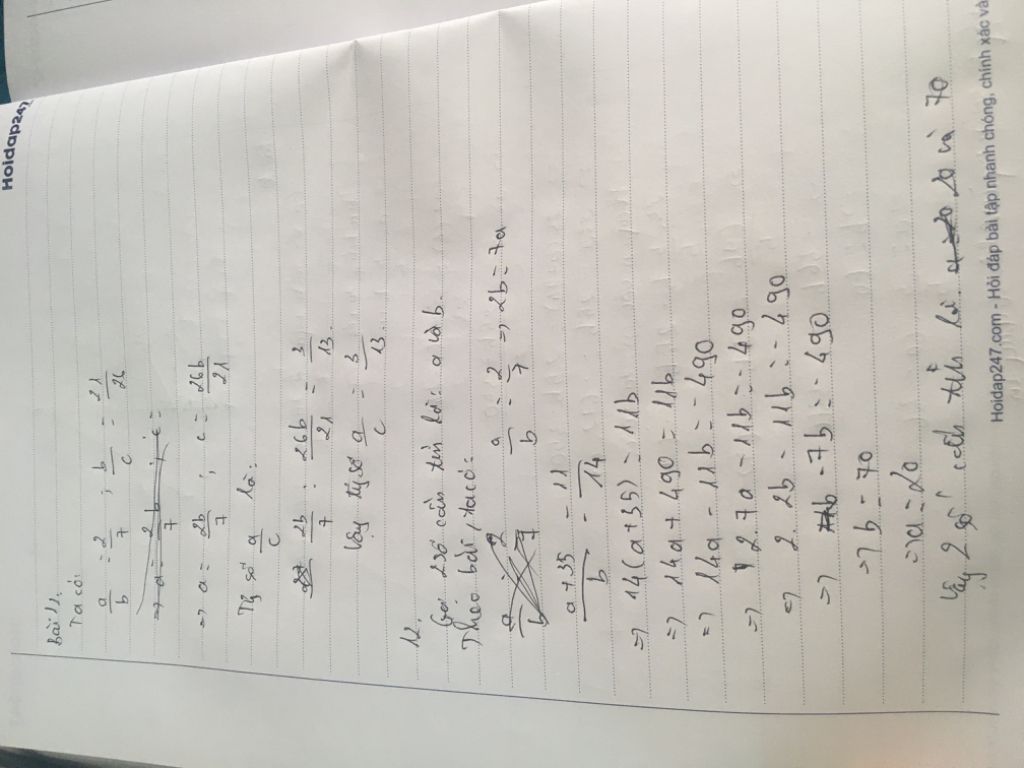 Hoidap247
Bài 11.
Ta có:
a/b = 2/7 ; b/c = 21/26
=> a = 2b/7 ; c =
=> a = 2b/7 ; c = 26b/21
Tỷ số a/c là:
2b/7 : 26b/21 = 3/13.
Vậy tỷ số a/c = 3/13.
12.
Gọi 2 số cần tìm là: a và b.
Theo bài, ta có:
a/b = 2/7 => 2b = 7a
a+35/b = 11/14
=> 14(a+35) = 11b
=> 14a + 490 = 11b
=> 14a - 11b = -490
=> 2.7a - 11b = -490
=> 2.2b - 11b = -490
=> -7b = -490
=> b = 70
=> a = 20
Vậy 2 số cần tìm là: 20 và 70
Hoidap247.com - Hỏi đáp bài tập nhanh chóng, chính xác và